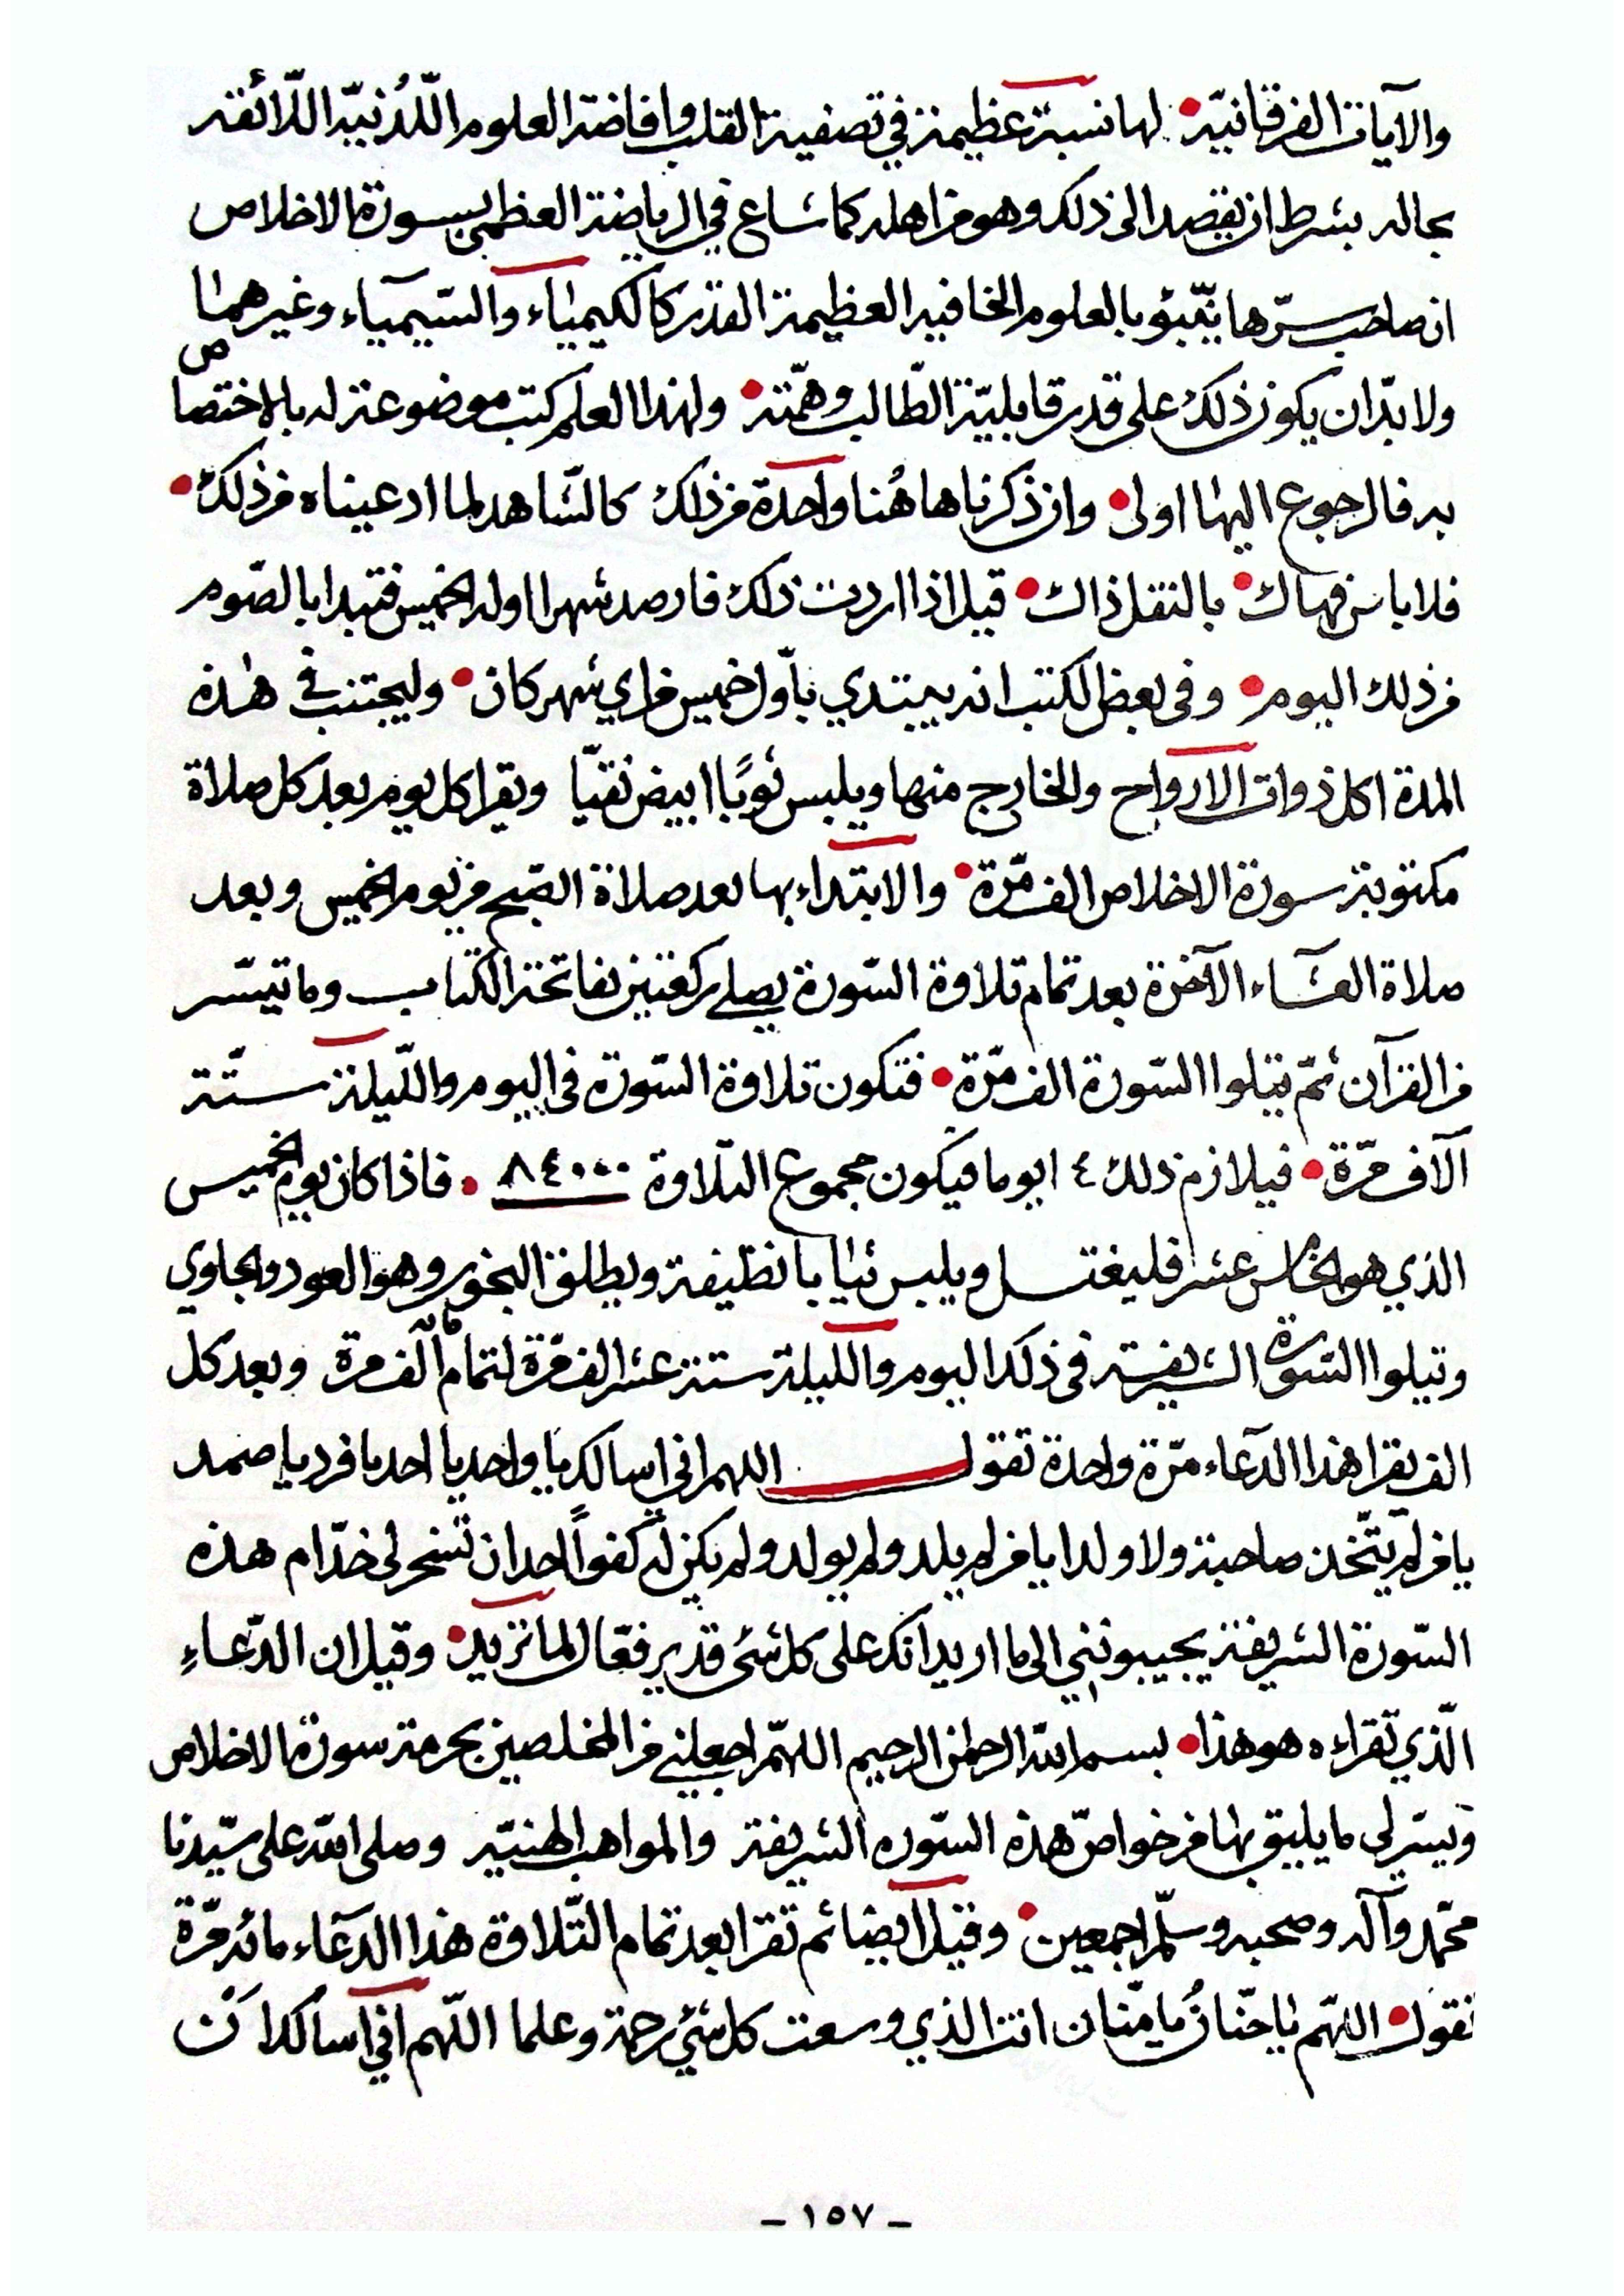 والآيات الفرقانيّة لها نسبة عظيمة في تصفية القلب وافاضة العلوم اللّدُنيّة اللّائقة
بحاله بشرط ان يقصد الى ذلك وهو من اهله كما شاع في الرياضة العظمى بسورة الاخلاص
ان صاحب سرّها ينبؤ بالعلوم الخافية العظيمة القدر كالكيمياء والسّيمياء وغيرهما
ولا بدّ ان يكون ذلك على قدر قابليّة الطّالب وهمّته ولهذا العلم كتب موضوعة له بالاختصاص
به فالرجوع اليها اولى وان ذكرنا هاهُنا واحدة من ذلك كالشّاهد لما ادعيناه من ذلك
فلا باس فهاك بالنقل ذاك قيل اذا اردت ذلك فارصد شهرا اوله الخميس فتبدا بالصّوم
من ذلك اليوم وفي بعض الكتب انه يبتدي باّول خميس من اي شهر كان وليجتنب في هذه
المدة اكل ذوات الارواح والخارج منها ويلبس ثوبًا ابيض نقيّا ويقرا كل يوم بعد كل صلاة
مكتوبة سورة الاخلاص الف مّرة والابتداء بها بعد صلاة الصّبح من يوم الخميس وبعد
صلاة العشاء الآخرة بعد تمام تلاوة السّورة يصلي ركعتين بفاتحة الكتاب وما تيسّر
من القرآن ثمّ يتلوا السّورة الف مّرة فتكون تلاوة السّورة في اليوم واللّيلة ستّة
آلاف مرّة فيلازم ذلك ١٤ يوما فيكون مجموع التّلاوة ٨٤٠٠٠ فاذا كان يوم الخميس
الذي هو الخامس عشر فليغتسل ويلبس ثيابا نظيفة ويطلق البخور وهو العود والجاوي
وتيلوا السّورة الشريفة في ذلك اليوم والليلة ستة عشر الف مّرة لتمام مائة الف مرة وبعد كل
الف يقرا هذا الدّعاء مرّة واحدة تقول اللهم اني اسالك يا واحد يا احد يا فرد يا صمد
يا من لم يتّخذ صاحبة ولا ولدا يا من لم يلد ولم يولد ولم يكن له كفواً احد ان تسخر لي خدّام هذه
السّورة الشريفة يجيبونني الى ما اريد انك على كل شئ قدير فعّال لما تريد وقيل ان الدّعاءِ
الّذي تقراءه هو هذا بسم الله الرحمن الرحيم اللهّم اجعلني من المخلصين بحرمة سورة الاخلاص
ويسّر لي ما يليق بها من خواصّ هذه السّوره الشريفة والمواهب الهنيّة وصلى الله على سيّدنا
محمّد وآله وصحبه وسلّم اجمعين وقيل ايضا ثم تقرا بعد تمام التّلاوة هذا الدّعاء مائة مّرة
تقول اللهّم يا حنّانُ يا منّان انت الذي وسعت كل شيْ رحمة وعلما اللّهم اني اسالك اَنْ
- ١٥٧ -